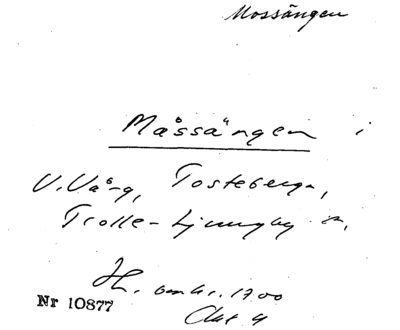 Mossängen
Måssängen i
V. Vång, Tosteberga,
Trolle-Ljungby s.
Hl. omkr. 1700
Akt 4
Nr 10877